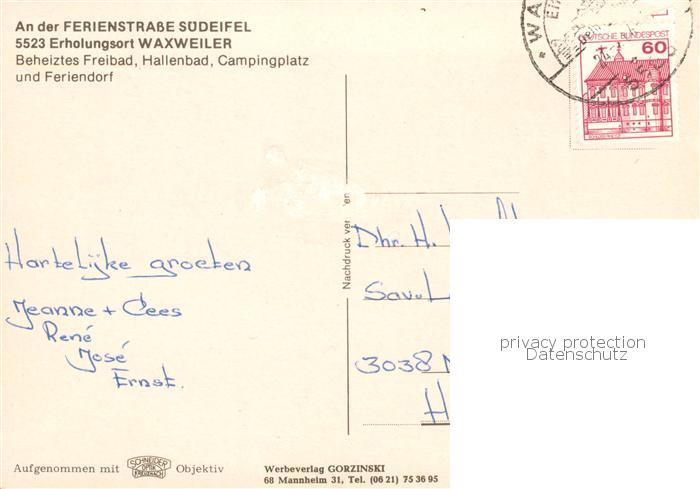 An der FERIENSTRAßE SÜDEIFEL
5523 Erholungsort WAXWEILER
Beheiztes Freibad, Hallenbad, Campingplatz
und Feriendorf
DEUTSCHE BUNDESPOST
60
Nachdruck ver
Hartelijke groeten
Jeanne + Cees
René
José
Ernst.
Dhr. H.
Sav.
3038
H
privacy protection
Datenschutz
Aufgenommen mit SCHNEIDER OPTIK KREUZNACH Objektiv
Werbeverlag GORZINSKI
68 Mannheim 31, Tel. (06 21) 75 36 95